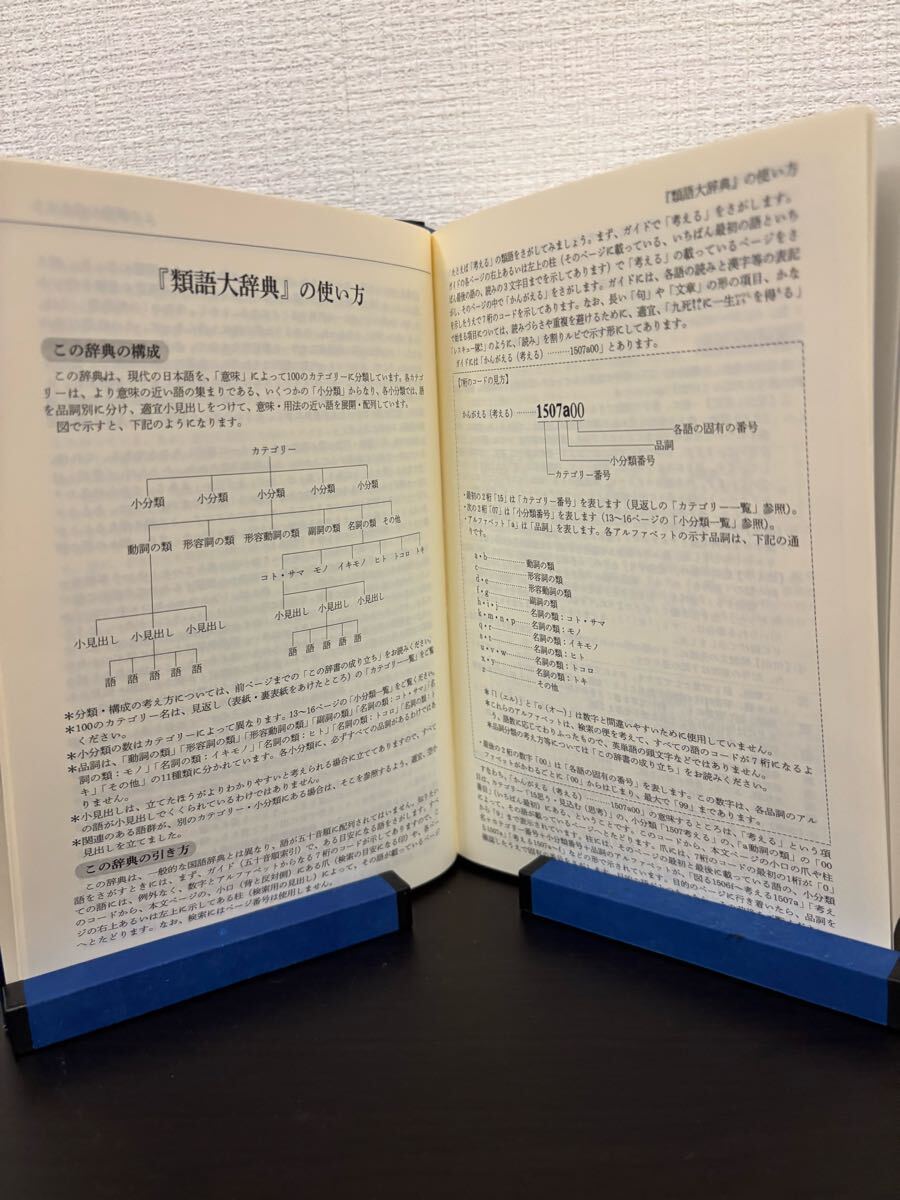 『類語大辞典』の使い方
この辞典の構成
この辞典は、現代の日本語を、「意味」によって100のカテゴリーに分類しています。各カテゴ
リーは、より意味の近い語の集まりである、いくつかの「小分類」からなり、各小分類では、語
を品詞別に分け、適宜小見出しをつけて、意味・用法の近い語を展開・配列しています。
図で示すと、下記のようになります。
カテゴリー
小分類 小分類 小分類 小分類 小分類
動詞の類 形容詞の類 形容動詞の類 副詞の類 名詞の類 その他
コト・サマ モノ イキモノ ヒト トコロ トキ
小見出し 小見出し 小見出し 小見出し 小見出し 小見出し
語 語 語 語 語 語 語 語 語 語
＊分類・構成の考え方については、前ページまでの「この辞書の成り立ち」をお読みください。
＊100のカテゴリー名は、見返し（表紙・裏表紙をあけたところ）の「カテゴリー一覧」をご覧
ください。
＊小分類の数はカテゴリーによって異なります。13〜16ページの「小分類一覧」をご覧ください。
＊品詞は、「動詞の類」「形容詞の類」「形容動詞の類」「副詞の類」「名詞の類：コト・サマ」「名
詞の類：モノ」「名詞の類：イキモノ」「名詞の類：ヒト」「名詞の類：トコロ」「名詞の類：ト
キ」「その他」の11種類に分かれています。各小分類に、必ずすべての品詞があるわけではあ
りません。
＊小見出しは、立てたほうがよりわかりやすいと考えられる場合に立ててありますので、すべて
の語が小見出しでくくられているわけではありません。
＊関連のある語群が、別のカテゴリー・小分類にある場合は、そこを参照するよう、適宜、空小
見出しを立てました。
この辞典の引き方
この辞典は、一般的な国語辞典とは異なり、語が五十音順に配列されてはいません。知りたい
語をさがすときには、まず、ガイド（五十音順索引）で、ある目安になる語をさがします。すべ
ての語には、例外なく、数字とアルファベットからなる7桁のコードが示してありますので、こ
のコードから、本文ページの、小口（背と反対側）にある爪（検索の目安になる印）や、各ペー
ジの右上あるいは左上に示してある柱（検索用の見出し）によって、その語が載っているページ
へとたどります。なお、検索にはページ番号は使用しません。
『類語大辞典』の使い方
たとえば「考える」の類語をさがしてみましょう。まず、ガイドで「考える」をさがします。
ガイドの各ページの右上あるいは左上の柱（そのページに載っている、いちばん最初の語といち
ばん最後の語の、読みの3文字目までを示してあります）で「考える」の載っているページをさ
がし、そのページの中で「かんがえる」をさがします。ガイドには、各語の読みと漢字等の表記
を示したうえで7桁のコードを示してあります。なお、長い「句」や「文章」の形の項目、かな
で始まる項目については、読みづらさや重複を避けるために、適宜、「九死に一生を得る」
ガイドには「かんがえる（考える）………1507a00」とあります。
【7桁のコードの見方】
かんがえる（考える）………1507a00
各語の固有の番号
品詞
小分類番号
カテゴリー番号
・最初の2桁「15」は「カテゴリー番号」を表します（見返しの「カテゴリー一覧」参照）。
・次の2桁「07」は「小分類番号」を表します（13〜16ページの「小分類一覧」参照）。
・アルファベット「a」は「品詞」を表します。各アルファベットの示す品詞は、下記の通
りです。
a・b…………動詞の類
c…………形容詞の類
d・e…………形容動詞の類
f・g…………副詞の類
h・i・j………名詞の類：コト・サマ
k・m・n・p……名詞の類：モノ
q・r…………名詞の類：イキモノ
s・t…………名詞の類：ヒト
u・v・w………名詞の類：トコロ
x・y…………名詞の類：トキ
z…………その他
＊「l（エル）」と「o（オー）」は数字と間違いやすいために使用していません。
＊これらのアルファベットは、検索の便を考えて、すべての語のコードが7桁になるよ
う、語数に応じてわりふったもので、英単語の頭文字などではありません。
＊品詞分類の考え方等については「この辞書の成り立ち」をお読みください。
・最後の2桁の数字「00」は「各語の固有の番号」を表します。この数字は、各品詞のアル
ファベットがかわるごとに「00」からはじまり、最大で「99」まであります。